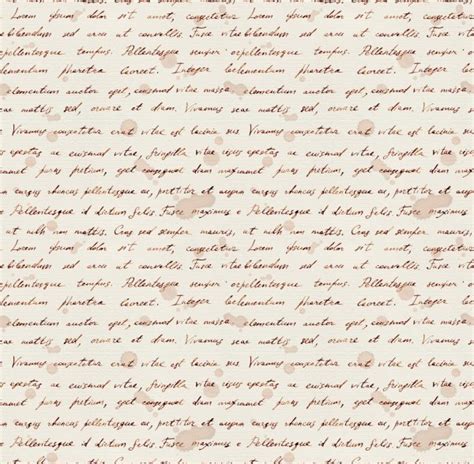 Lorem ipsum dolor sit amet, consectetur Lorem ipsum dolor sit amet, consectetur
bibendum sed arcu ut convallis. Fusce bibendum sed arcu ut convallis. Fusce
pellentesque tempus. Pellentesque semper pellentesque tempus. Pellentesque semper
elementum pharetra laoreet. Integer elementum pharetra laoreet. Integer
elementum auctor eget, euismod vitae massa elementum auctor eget, euismod vitae massa
nec mattis sed, ornare et diam. Vivamus nec mattis sed, ornare et diam. Vivamus
Vivamus consectetur erat vitae est lacinia Vivamus consectetur erat vitae est lacinia
egestas ac euismod vitae, fringilla vitae egestas ac euismod vitae, fringilla vitae
purus pretium, eget congue diam maximus purus pretium, eget congue diam maximus
cursus rhoncus pellentesque ac, porttitor et cursus rhoncus pellentesque ac, porttitor et
Pellentesque id dictum felis. Fusce maximus Pellentesque id dictum felis. Fusce maximus
ut nibh non mattis. Cras sed semper mauris, ut nibh non mattis. Cras sed semper mauris,
Lorem ipsum dolor sit amet, consectetur Lorem ipsum dolor sit amet, consectetur
bibendum sed arcu ut convallis. Fusce bibendum sed arcu ut convallis. Fusce
pellentesque tempus. Pellentesque semper pellentesque tempus. Pellentesque semper
elementum pharetra laoreet. Integer elementum pharetra laoreet. Integer
elementum auctor eget, euismod vitae massa elementum auctor eget, euismod vitae massa
nec mattis sed, ornare et diam. Vivamus nec mattis sed, ornare et diam. Vivamus
Vivamus consectetur erat vitae est lacinia Vivamus consectetur erat vitae est lacinia
egestas ac euismod vitae, fringilla vitae egestas ac euismod vitae, fringilla vitae
purus pretium, eget congue diam maximus purus pretium, eget congue diam maximus
cursus rhoncus pellentesque ac, porttitor et cursus rhoncus pellentesque ac, porttitor et
Pellentesque id dictum felis. Fusce maximus Pellentesque id dictum felis. Fusce maximus